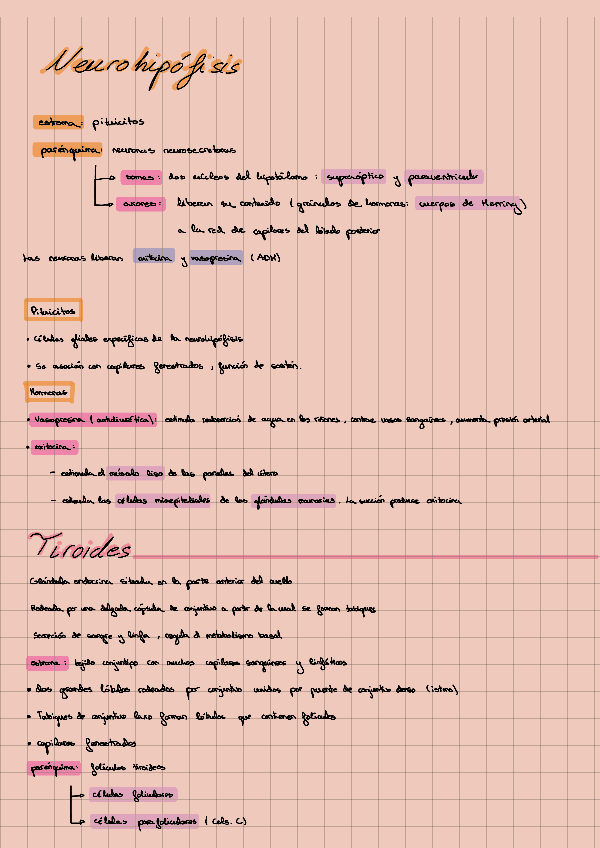 Neurohipófisis
estroma: pituicitos
parénquima: neuronas neurosecretoras
somas: dos núcleos del hipotálamo: supraóptico y paraventricular
axones: liberan su contenido (gránulos de hormonas: cuerpos de Herring)
a la red de capilares del lóbulo posterior
Las neuronas liberan oxitocina y vasopresina (ADH)
Pituicitos
• Células gliales específicas de la neurohipófisis
• Se asocian con capilares fenestrados, función de sostén.
Hormonas
• Vasopresina (antidiurética): estimula reabsorción de agua en los riñones, contrae vasos sanguíneos, aumenta presión arterial
• oxitocina:
- estimula el músculo liso de las paredes del útero
- estimula las células mioepiteliales de las glándulas mamarias. La succión produce oxitocina
Tiroides
Glándula endocrina situada en la parte anterior del cuello
Rodeada por una delgada cápsula de conjuntivo a partir de la cual se forman tabiques
Secreción de sangre y linfa, regula el metabolismo basal
estroma: tejido conjuntivo con muchos capilares sanguíneos y linfáticos
• Dos grandes lóbulos rodeados por conjuntivo unidos por puente de conjuntivo denso (istmo)
• Tabiques de conjuntivo laxo forman lóbulos que contienen folículos
• capilares fenestrados
parénquima: folículos tiroideos
células foliculares
células parafoliculares (Cels. C)